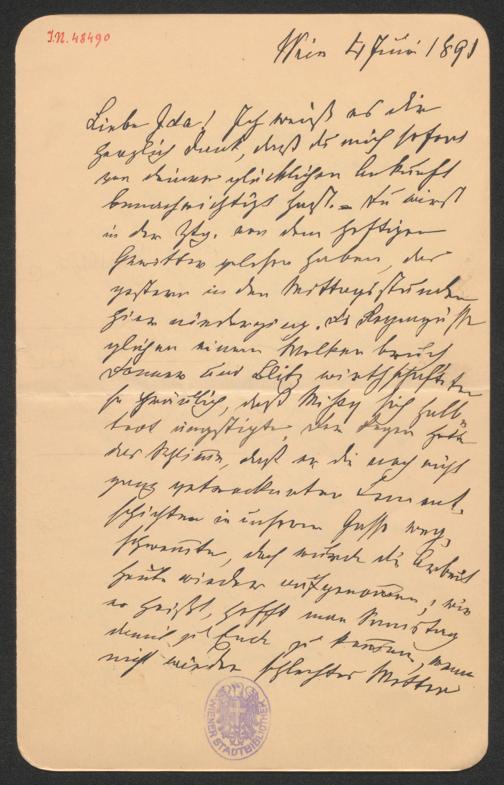 I.N. 48490
Wien 4 Juni 1891
Liebe Ida! Ich weiß es dir
herzlich Dank, daß du mich sofort
von deiner glücklichen Ankunft
benachrichtigt hast. – Du wirst
in der Ztg. von dem heftigen
Gewitter gelesen haben, das
gestern in den Mittagsstunden
hier niederging. Die Regengüsse
glichen einem Wolkenbruch
Donner und Blitz wirthschafteten
so gräulich, daß sich halb
todt ängstigte, der Regen hatte
das Schlimme, daß er die noch nicht
ganz getrockneten Cement-
schichten in unserer Gasse weg-
schwemmte, doch wurde die Arbeit
heute wieder aufgenommen, wie
es heißt, hofft man Samstag
damit zu Ende zu kommen, wenn
nicht wieder schlechtes Wetter
WIENER STADTBIBLIOTHEK